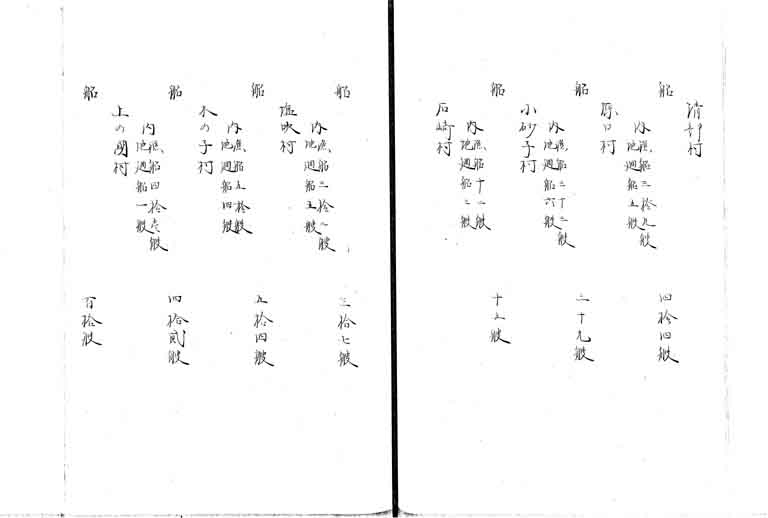 清部村
船 四拾四艘
内 漁船三拾九艘
地廻船五艘
原口村
船 二十九艘
内 漁船二十三艘
地廻船六艘
小砂子村
船
内 漁船
地廻船
石崎村
船 三拾七艘
内 漁船三拾二艘
地廻船五艘
塩吹村
船 五拾四艘
内 漁船五拾艘
地廻船四艘
木の子村
船 四拾貳艘
内 漁船四拾壱艘
地廻船一艘
上の國村
船 百拾艘